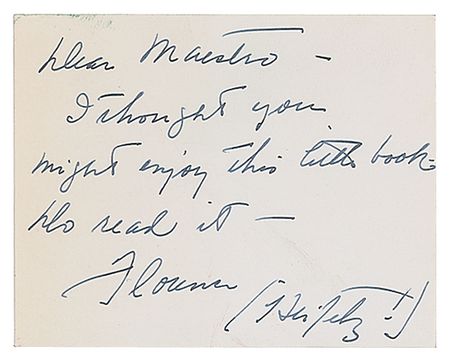 Dear Maestro -
I thought you
might enjoy this little book -
Do read it -
Florence (Heifetz!)